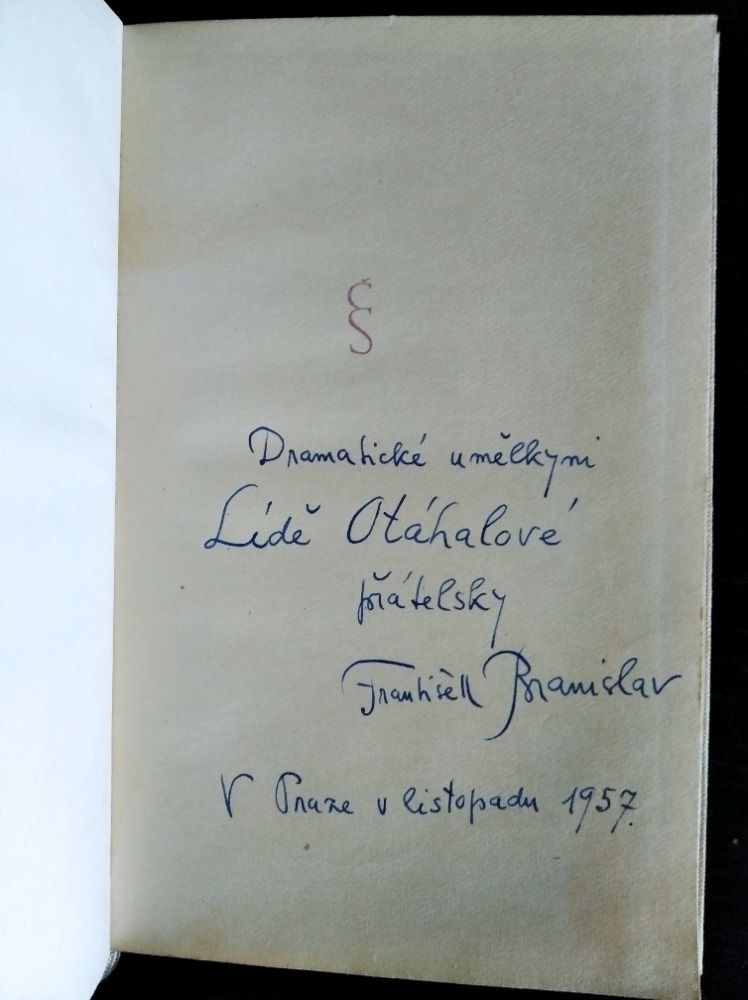 ČS
Dramatické umělkyni
Lídě Otáhalové
přátelsky
František Branislav
V Praze v listopadu 1957.